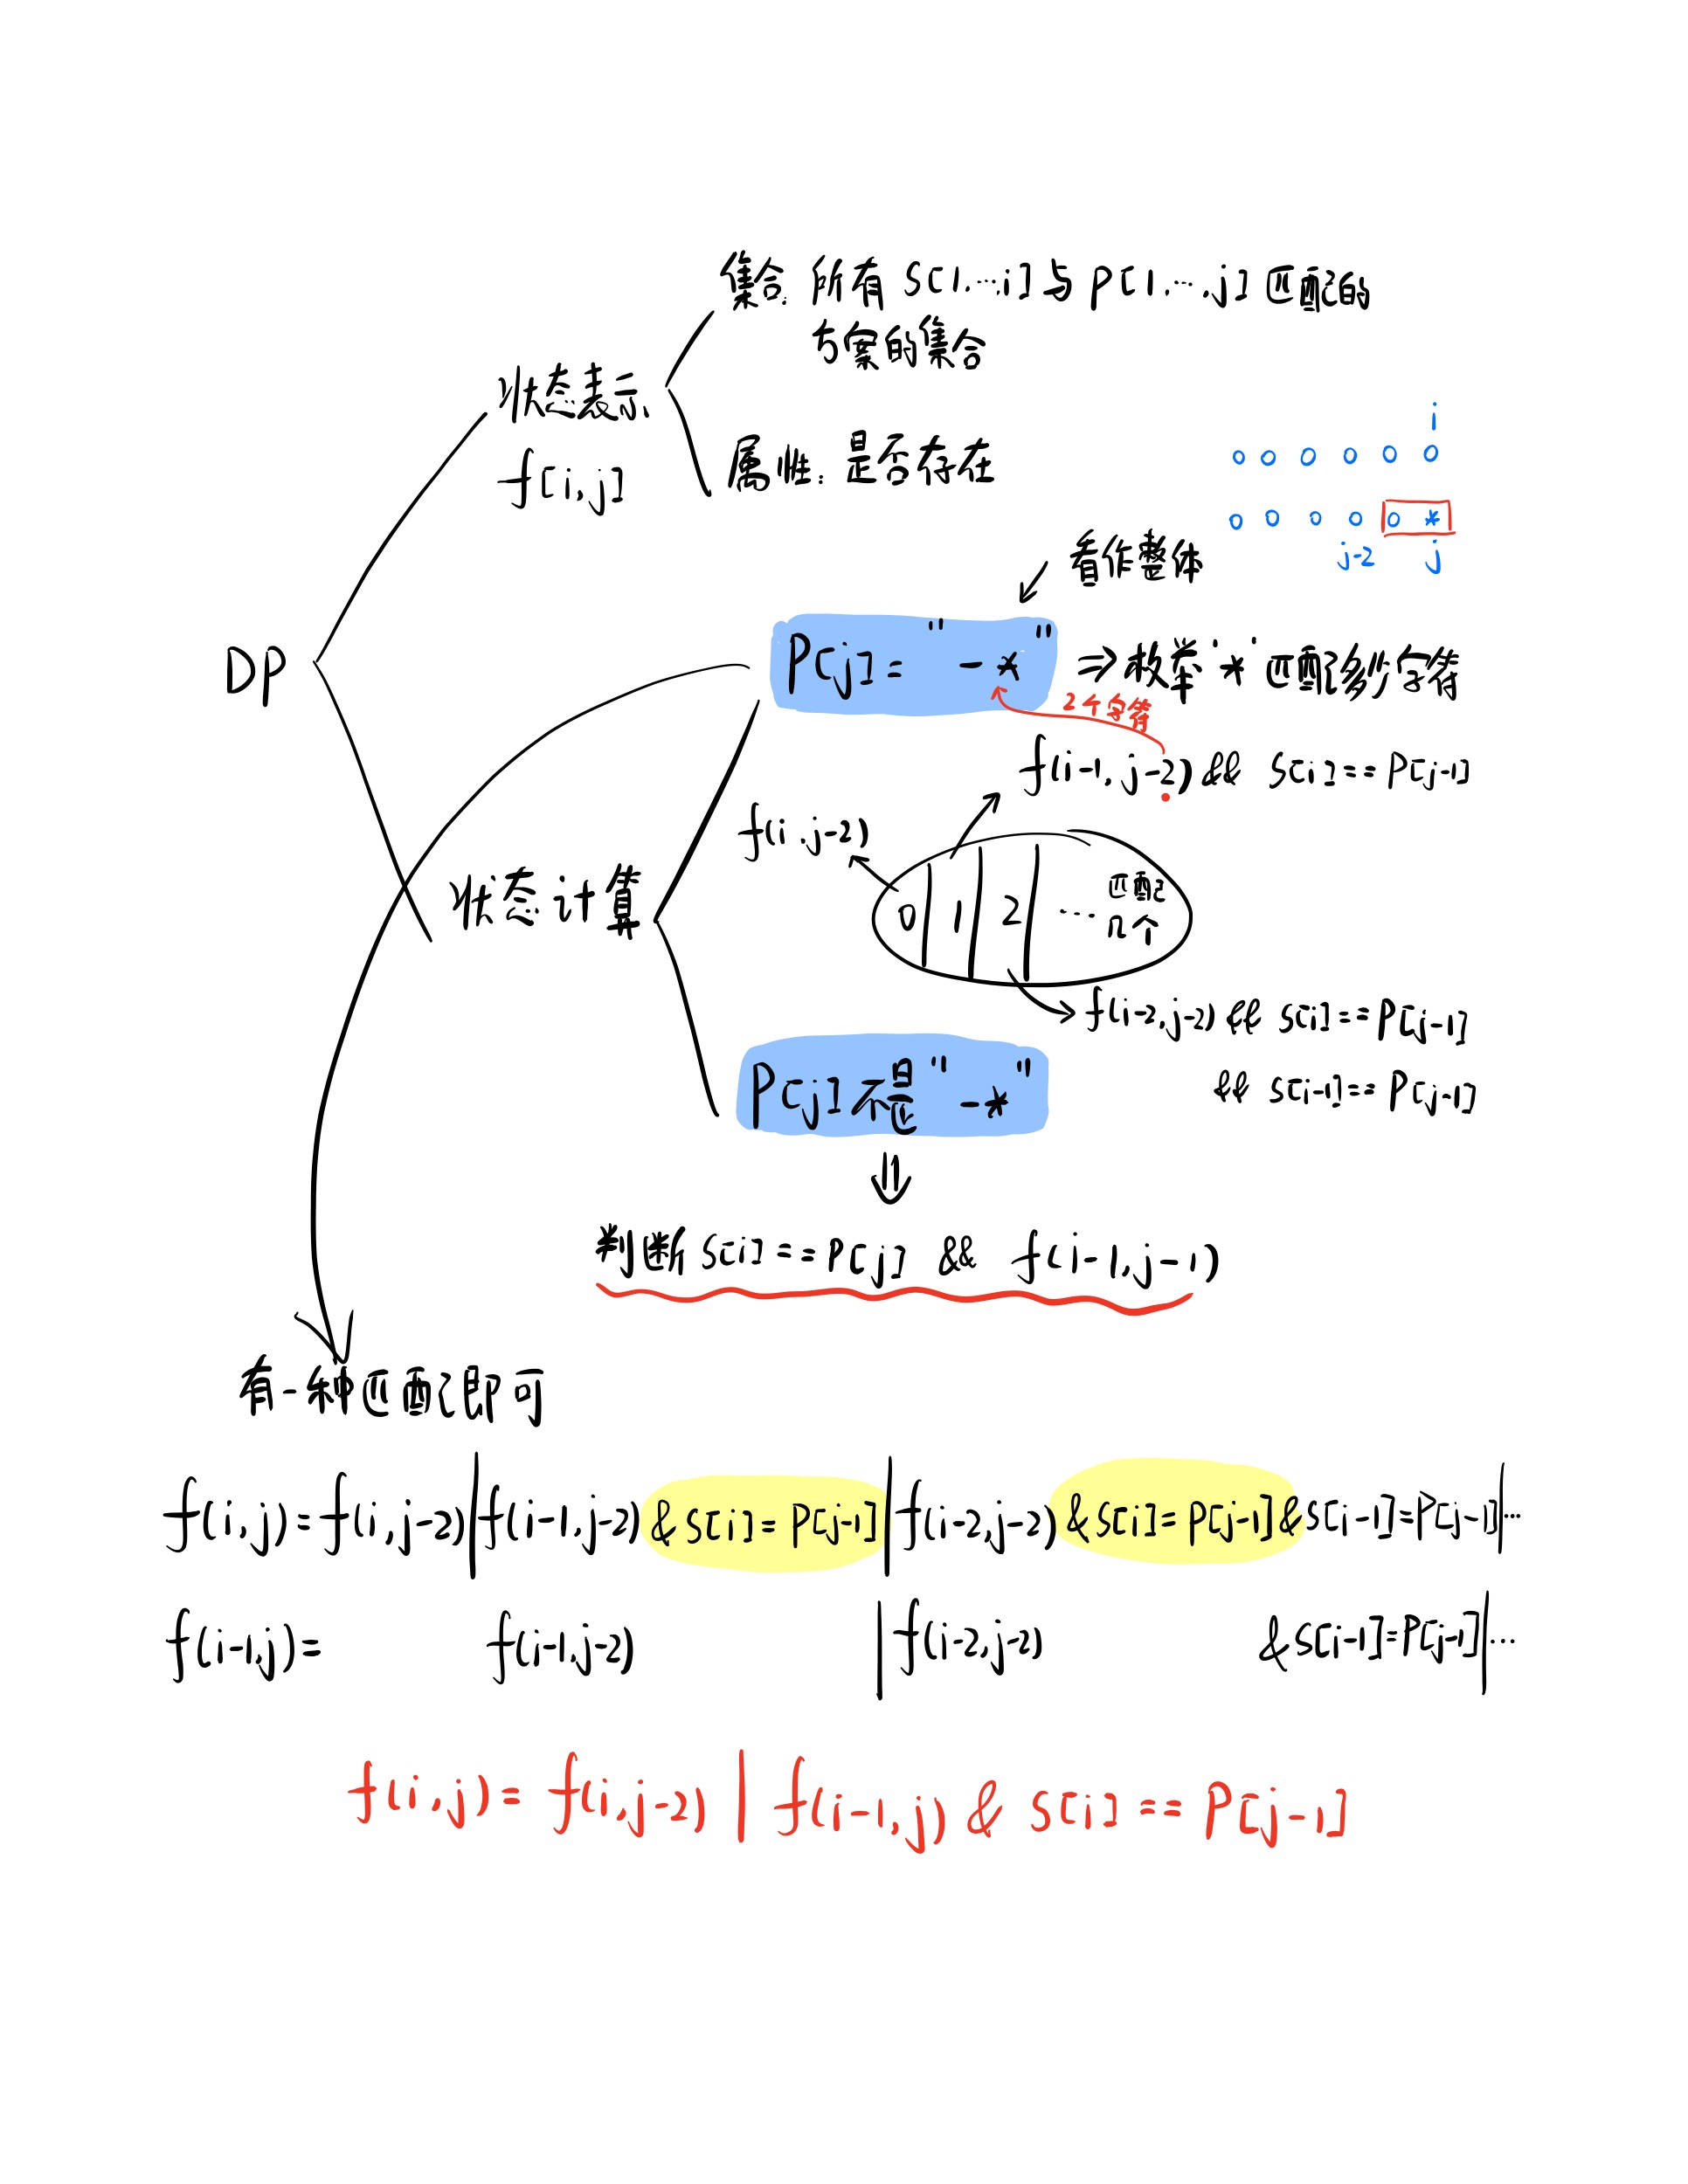 集合: 所有 S[1,…,i] 与 P[1,…,j] 匹配的
方案的集合
状态表示
f[i,j]
属性: 是否存在
i
o o o o o o
o o o o o *
j-2 j
看作整体
DP
P[j]= "-*" ⇒ 枚举'*'匹配多少字符
2个字符
f(i-1, j-2) && S[i]==P[j-1]
f(i,j-2)
状态计算
0 | 1 | 2 | … 匹配
几个
f(i-2,j-2) && S[i]==P[j-1]
&& S[i-1]==P[j-1]
P[j]不是"-*"
⇓
判断 S[i]==P[j] && f(i-1,j-1)
有一种匹配即可
f(i,j)=f(i,j-2)|f(i-1,j-2)&S[i]=P[j-1]|f(i-2,j-2)&S[i]=P[j-1]&S[i-1]=P[j-1]|…
f(i-1,j)= f(i-1,j-2) |f(i-2,j-2) &S[i-1]=P[j-1]|…
f(i,j)= f(i,j-2) | f(i-1,j) & S[i]==P[j-1]